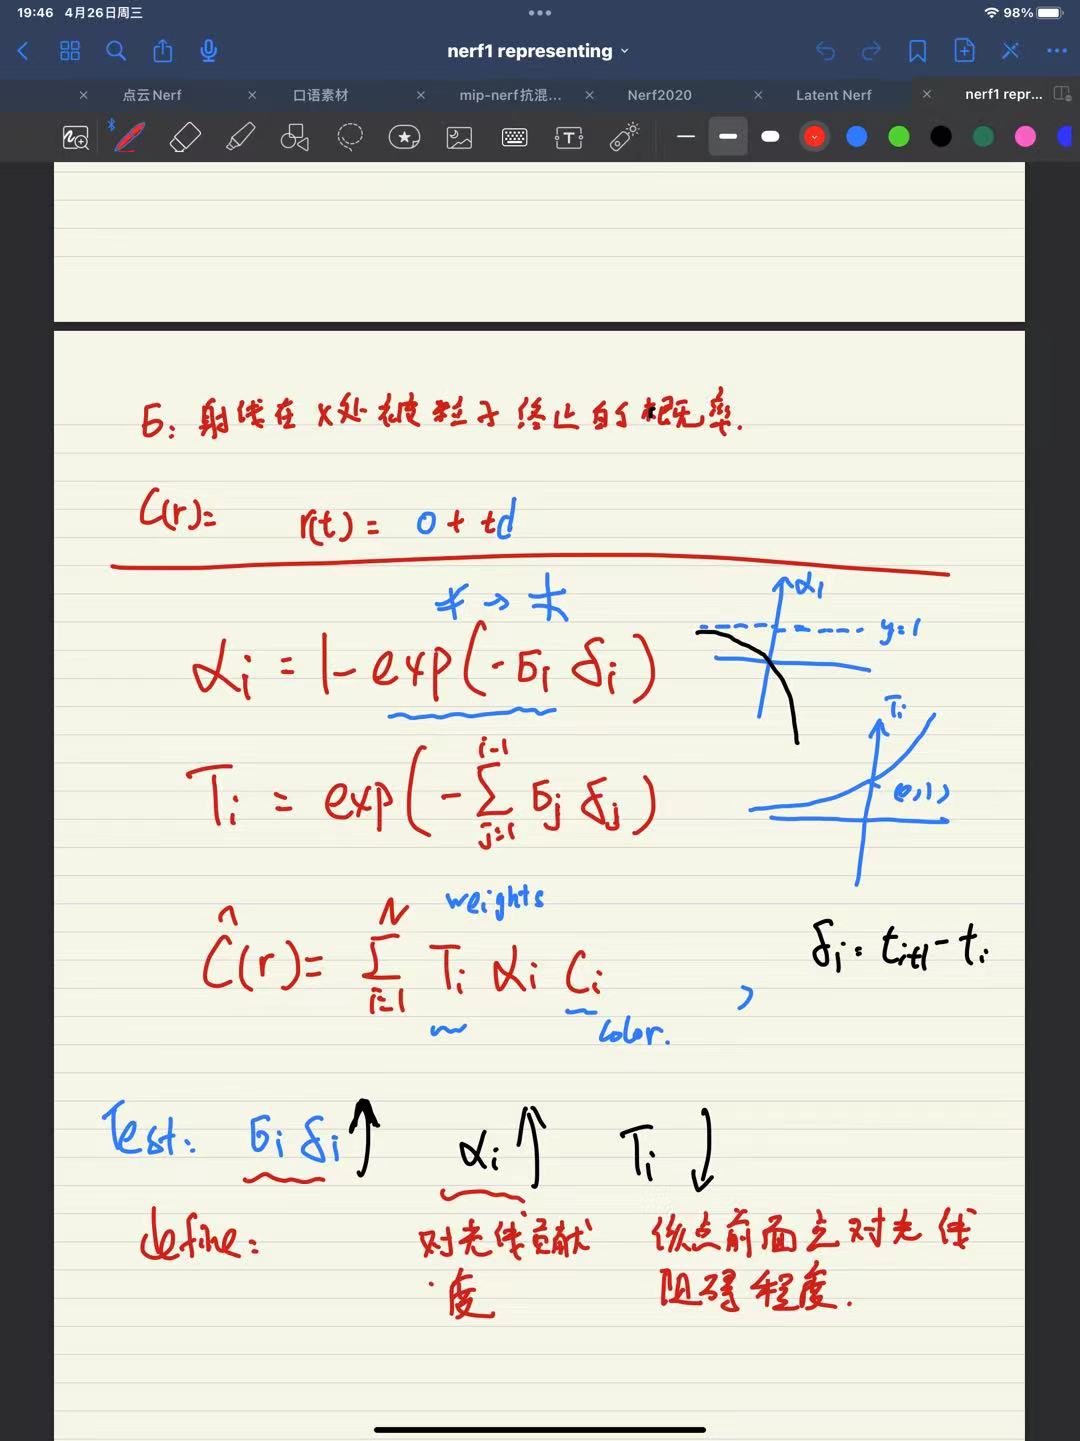 19:46 4月26日周三
98%
nerf1 representing
点云Nerf
口语素材
mip-nerf抗混...
Nerf2020
Latent Nerf
nerf1 repr...
σ: 射线在x处被粒子终止的概率.
C(r)= r(t) = o + td
≯ → 大
αi
y=1
αi = 1- exp(-σi δi)
Ti
(0,1)
Ti = exp(- Σ_{j=1}^{i-1} σj δj)
weights
Ĉ(r)= Σ_{i=1}^{N} Ti αi Ci
δi = t_{i+1} - ti
color.
Test: σi δi ↑ αi ↑ Ti ↓
define: 对光线贡献度
该点前面点对光线阻碍程度.